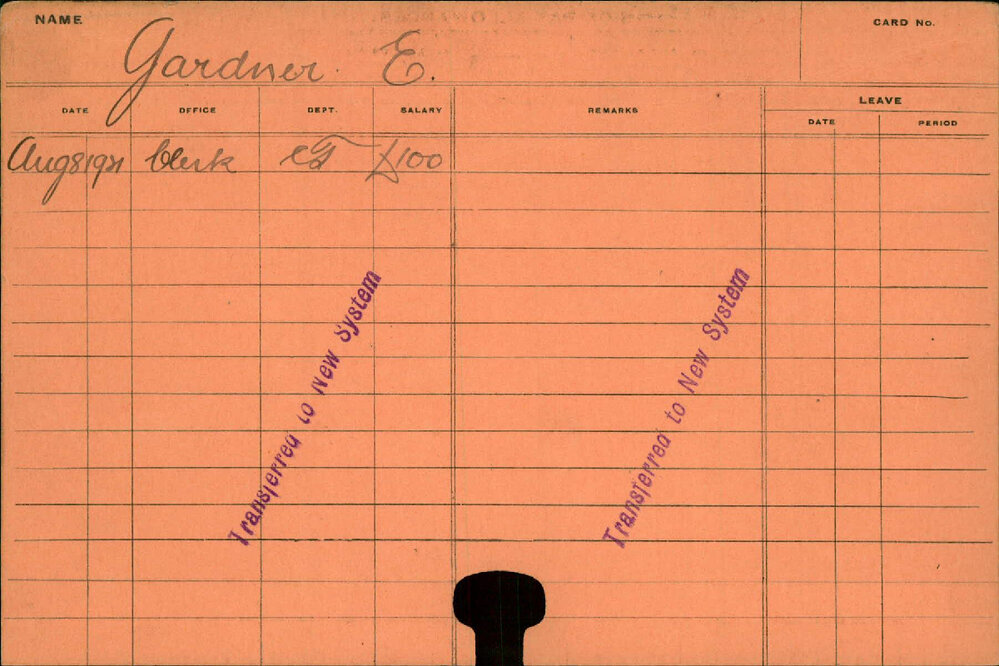 NAME
Gardner. E.
CARD No.
DATE OFFICE DEPT. SALARY REMARKS LEAVE
DATE PERIOD
Aug 8 1921 Clerk £100
Transferred to New System
Transferred to New System